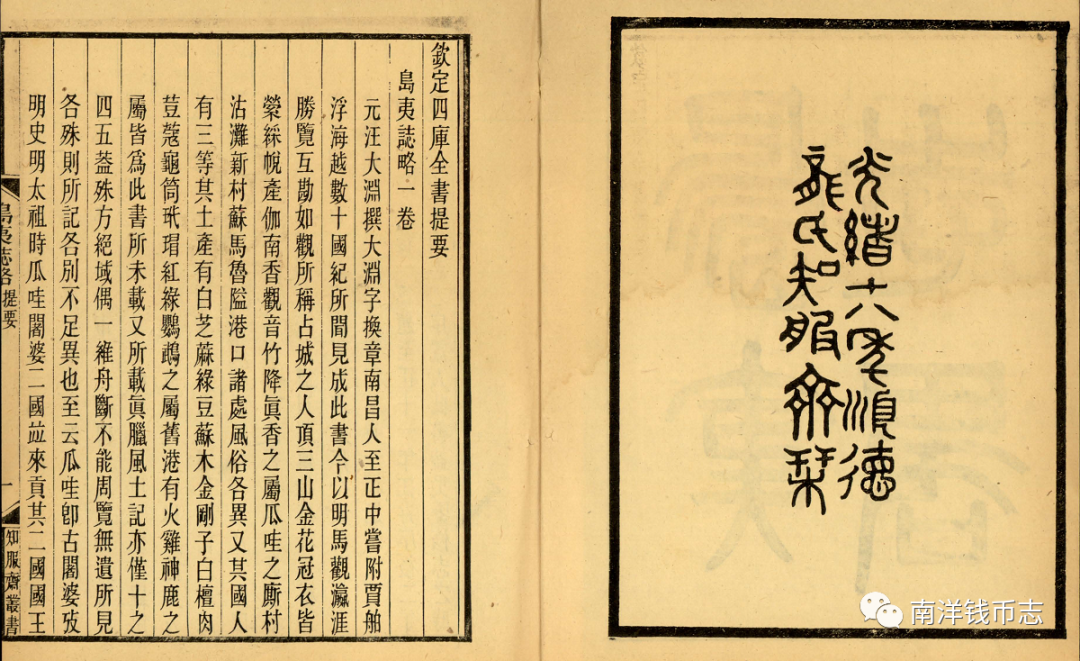 光緒十八年順德
龍氏知服齋栞
欽定四庫全書提要
島夷誌略一卷
元汪大淵撰大淵字換章南昌人至正中嘗附賈舶
浮海越數十國紀所聞見成此書今以明馬觀瀛涯
勝覽互勘如觀所稱占城之人頂三山金花冠衣皆
縈綵帨產伽南香觀音竹降眞香之屬瓜哇之厮村
沽灘新村蘇馬魯隘港口諸處風俗各異又其國人
有三等其土產有白芝蔴綠豆蘇木金剛子白檀肉
荳蔻龜筒玳瑁紅綠鸚鵡之屬舊港有火雞神鹿之
屬皆爲此書所未載又所載眞臘風土記亦僅十之
四五葢殊方絕域偶一維舟斷不能周覽無遺所見
各殊則所記各別不足異也至云瓜哇卽古闍婆攷
明史明太祖時瓜哇闍婆二國竝來貢其二國國王
島夷誌略 提要
一
知服齋叢書
南洋钱币志